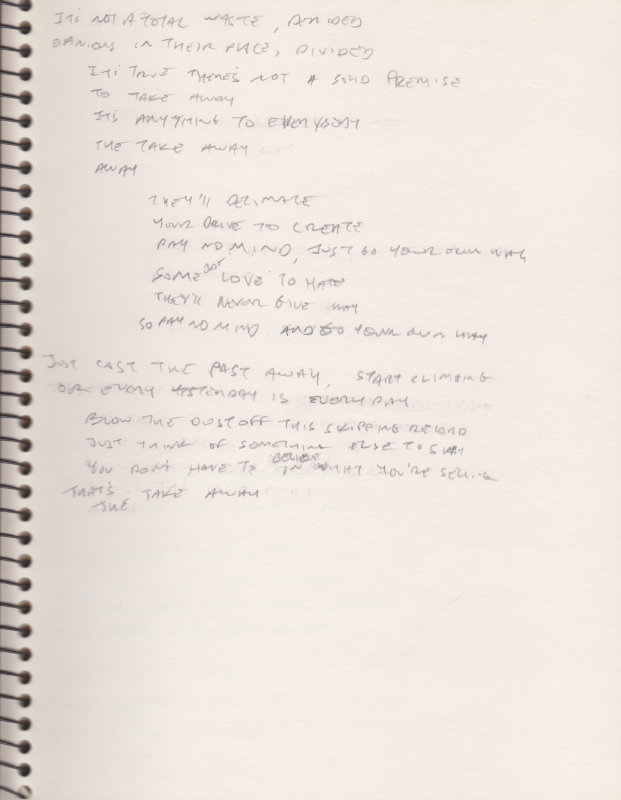 IT'S NOT A TOTAL WASTE, DERIDED
OPINIONS IN THEIR PLACE, DIVIDED
IT'S TRUE THERE'S NOT A SOLID PREMISE
TO TAKE AWAY
ITS ANYTHING TO EVERYBODY
THE TAKE AWAY
AWAY
THEY'LL DECIMATE
YOUR DRIVE TO CREATE
PAY NO MIND, JUST GO YOUR OWN WAY
SOME JUST LOVE TO HATE
THEY'LL NEVER GIVE WAY
SO PAY NO MIND AND GO YOUR OWN WAY
JUST CAST THE PAST AWAY, START CLIMBING
OR EVERY YESTERDAY IS EVERYDAY
BLOW THE DUST OFF THIS SKIPPING RECORD
JUST THINK OF SOMETHING ELSE TO SAY
YOU DON'T HAVE TO BELIEVE IN WHAT YOU'RE SELLING
THAT'S TAKE AWAY
THE